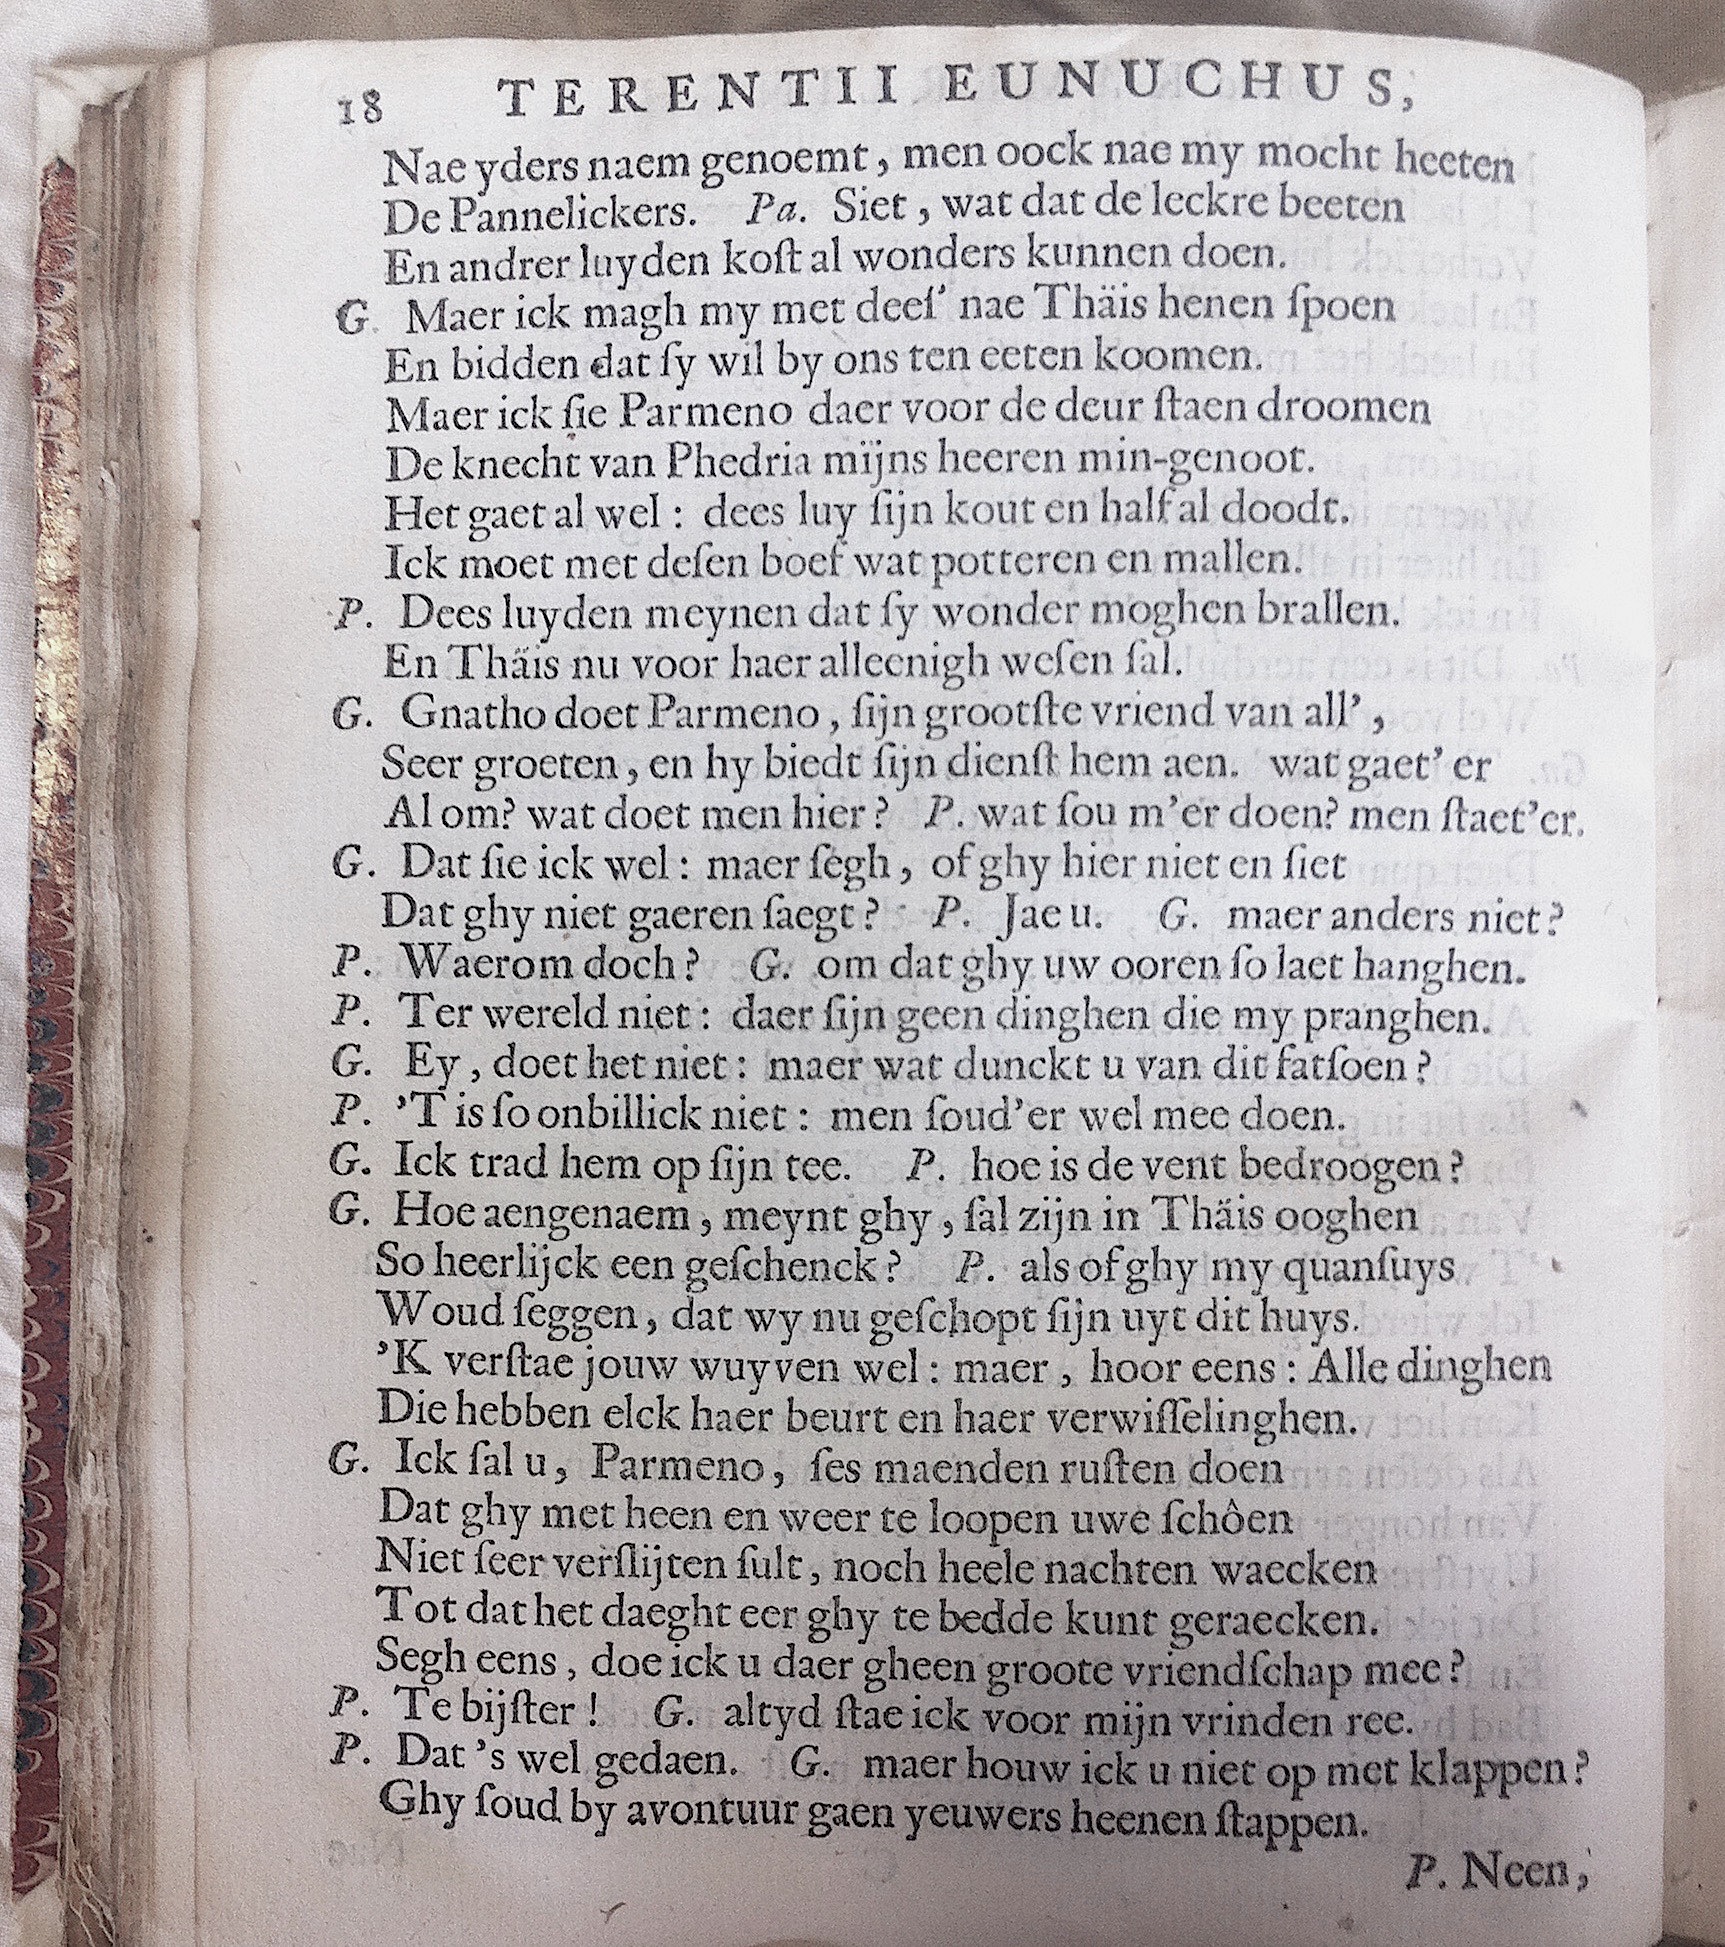 18 TERENTII EUNUCHUS,
Nae yders naem genoemt, men oock nae my mocht heeten
De Pannelickers. Pa. Siet, wat dat de leckre beeten
En andrer luyden koſt al wonders kunnen doen.
G. Maer ick magh my met deeſ' nae Thäis henen ſpoen
En bidden dat ſy wil by ons ten eeten koomen.
Maer ick ſie Parmeno daer voor de deur ſtaen droomen
De knecht van Phedria mijns heeren min-genoot.
Het gaet al wel: dees luy ſijn kout en half al doodt.
Ick moet met deſen boef wat potteren en mallen.
P. Dees luyden meynen dat ſy wonder moghen brallen.
En Thäis nu voor haer alleenigh weſen ſal.
G. Gnatho doet Parmeno, ſijn grootſte vriend van all',
Seer groeten, en hy biedt ſijn dienſt hem aen. wat gaet'er
Al om? wat doet men hier? P. wat ſou m'er doen? men ſtaet'er.
G. Dat ſie ick wel: maer ſegh, of ghy hier niet en ſiet
Dat ghy niet gaeren ſaegt? P. Jae u. G. maer anders niet?
P. Waerom doch? G. om dat ghy uw ooren ſo laet hanghen.
P. Ter wereld niet: daer ſijn geen dinghen die my pranghen.
G. Ey, doet het niet: maer wat dunckt u van dit fatſoen?
P. 'T is ſo onbillick niet: men ſoud'er wel mee doen.
G. Ick trad hem op ſijn tee. P. hoe is de vent bedroogen?
G. Hoe aengenaem, meynt ghy, ſal zijn in Thäis ooghen
So heerlijck een geſchenck? P. als of ghy my quanſuys
Woud ſeggen, dat wy nu geſchopt ſijn uyt dit huys.
'K verſtae jouw wuyven wel: maer, hoor eens: Alle dinghen
Die hebben elck haer beurt en haer verwiſſelinghen.
G. Ick ſal u, Parmeno, ſes maenden ruſten doen
Dat ghy met heen en weer te loopen uwe ſchôen
Niet ſeer verſlijten ſult, noch heele nachten waecken
Tot dat het daeght eer ghy te bedde kunt geraecken.
Segh eens, doe ick u daer gheen groote vriendſchap mee?
P. Te bijſter! G. altyd ſtae ick voor mijn vrinden ree.
P. Dat 's wel gedaen. G. maer houw ick u niet op met klappen?
Ghy ſoud by avontuur gaen yeuwers heenen ſtappen.
P. Neen,